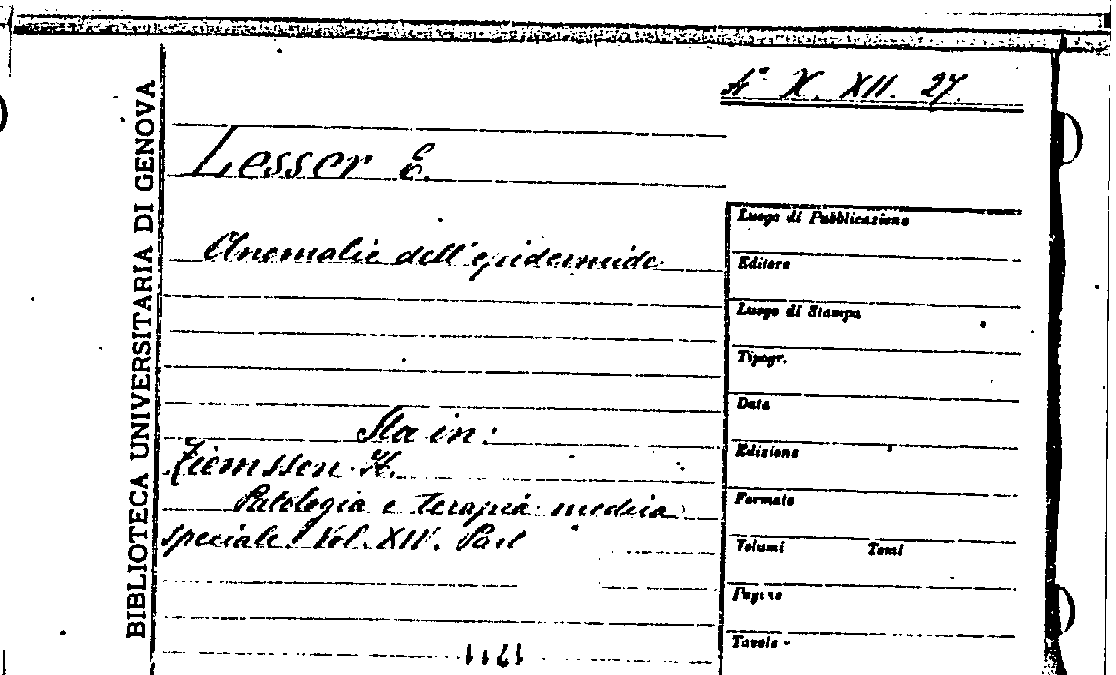 BIBLIOTECA UNIVERSITARIA DI GENOVA
Aª X. XII. 27.
Lesser E.
Anomalie dell'epidermide
Sta in:
Ziemssen H.
Patologia e terapia medica
speciale. Vol. XIV. Part
Luogo di Pubblicazione
Editore
Luogo di Stampa
Tipogr.
Data
Edizione
Formato
Volumi Tomi
Pagine
Tavole